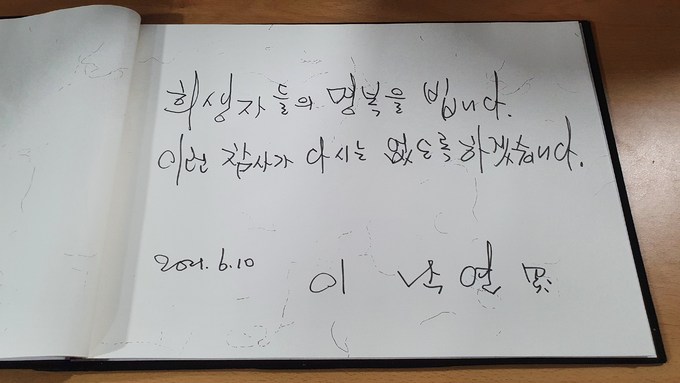 희생자들의 명복을 빕니다.
이런 참사가 다시는 없도록 하겠습니다.
2021. 6. 10 이 낙 연